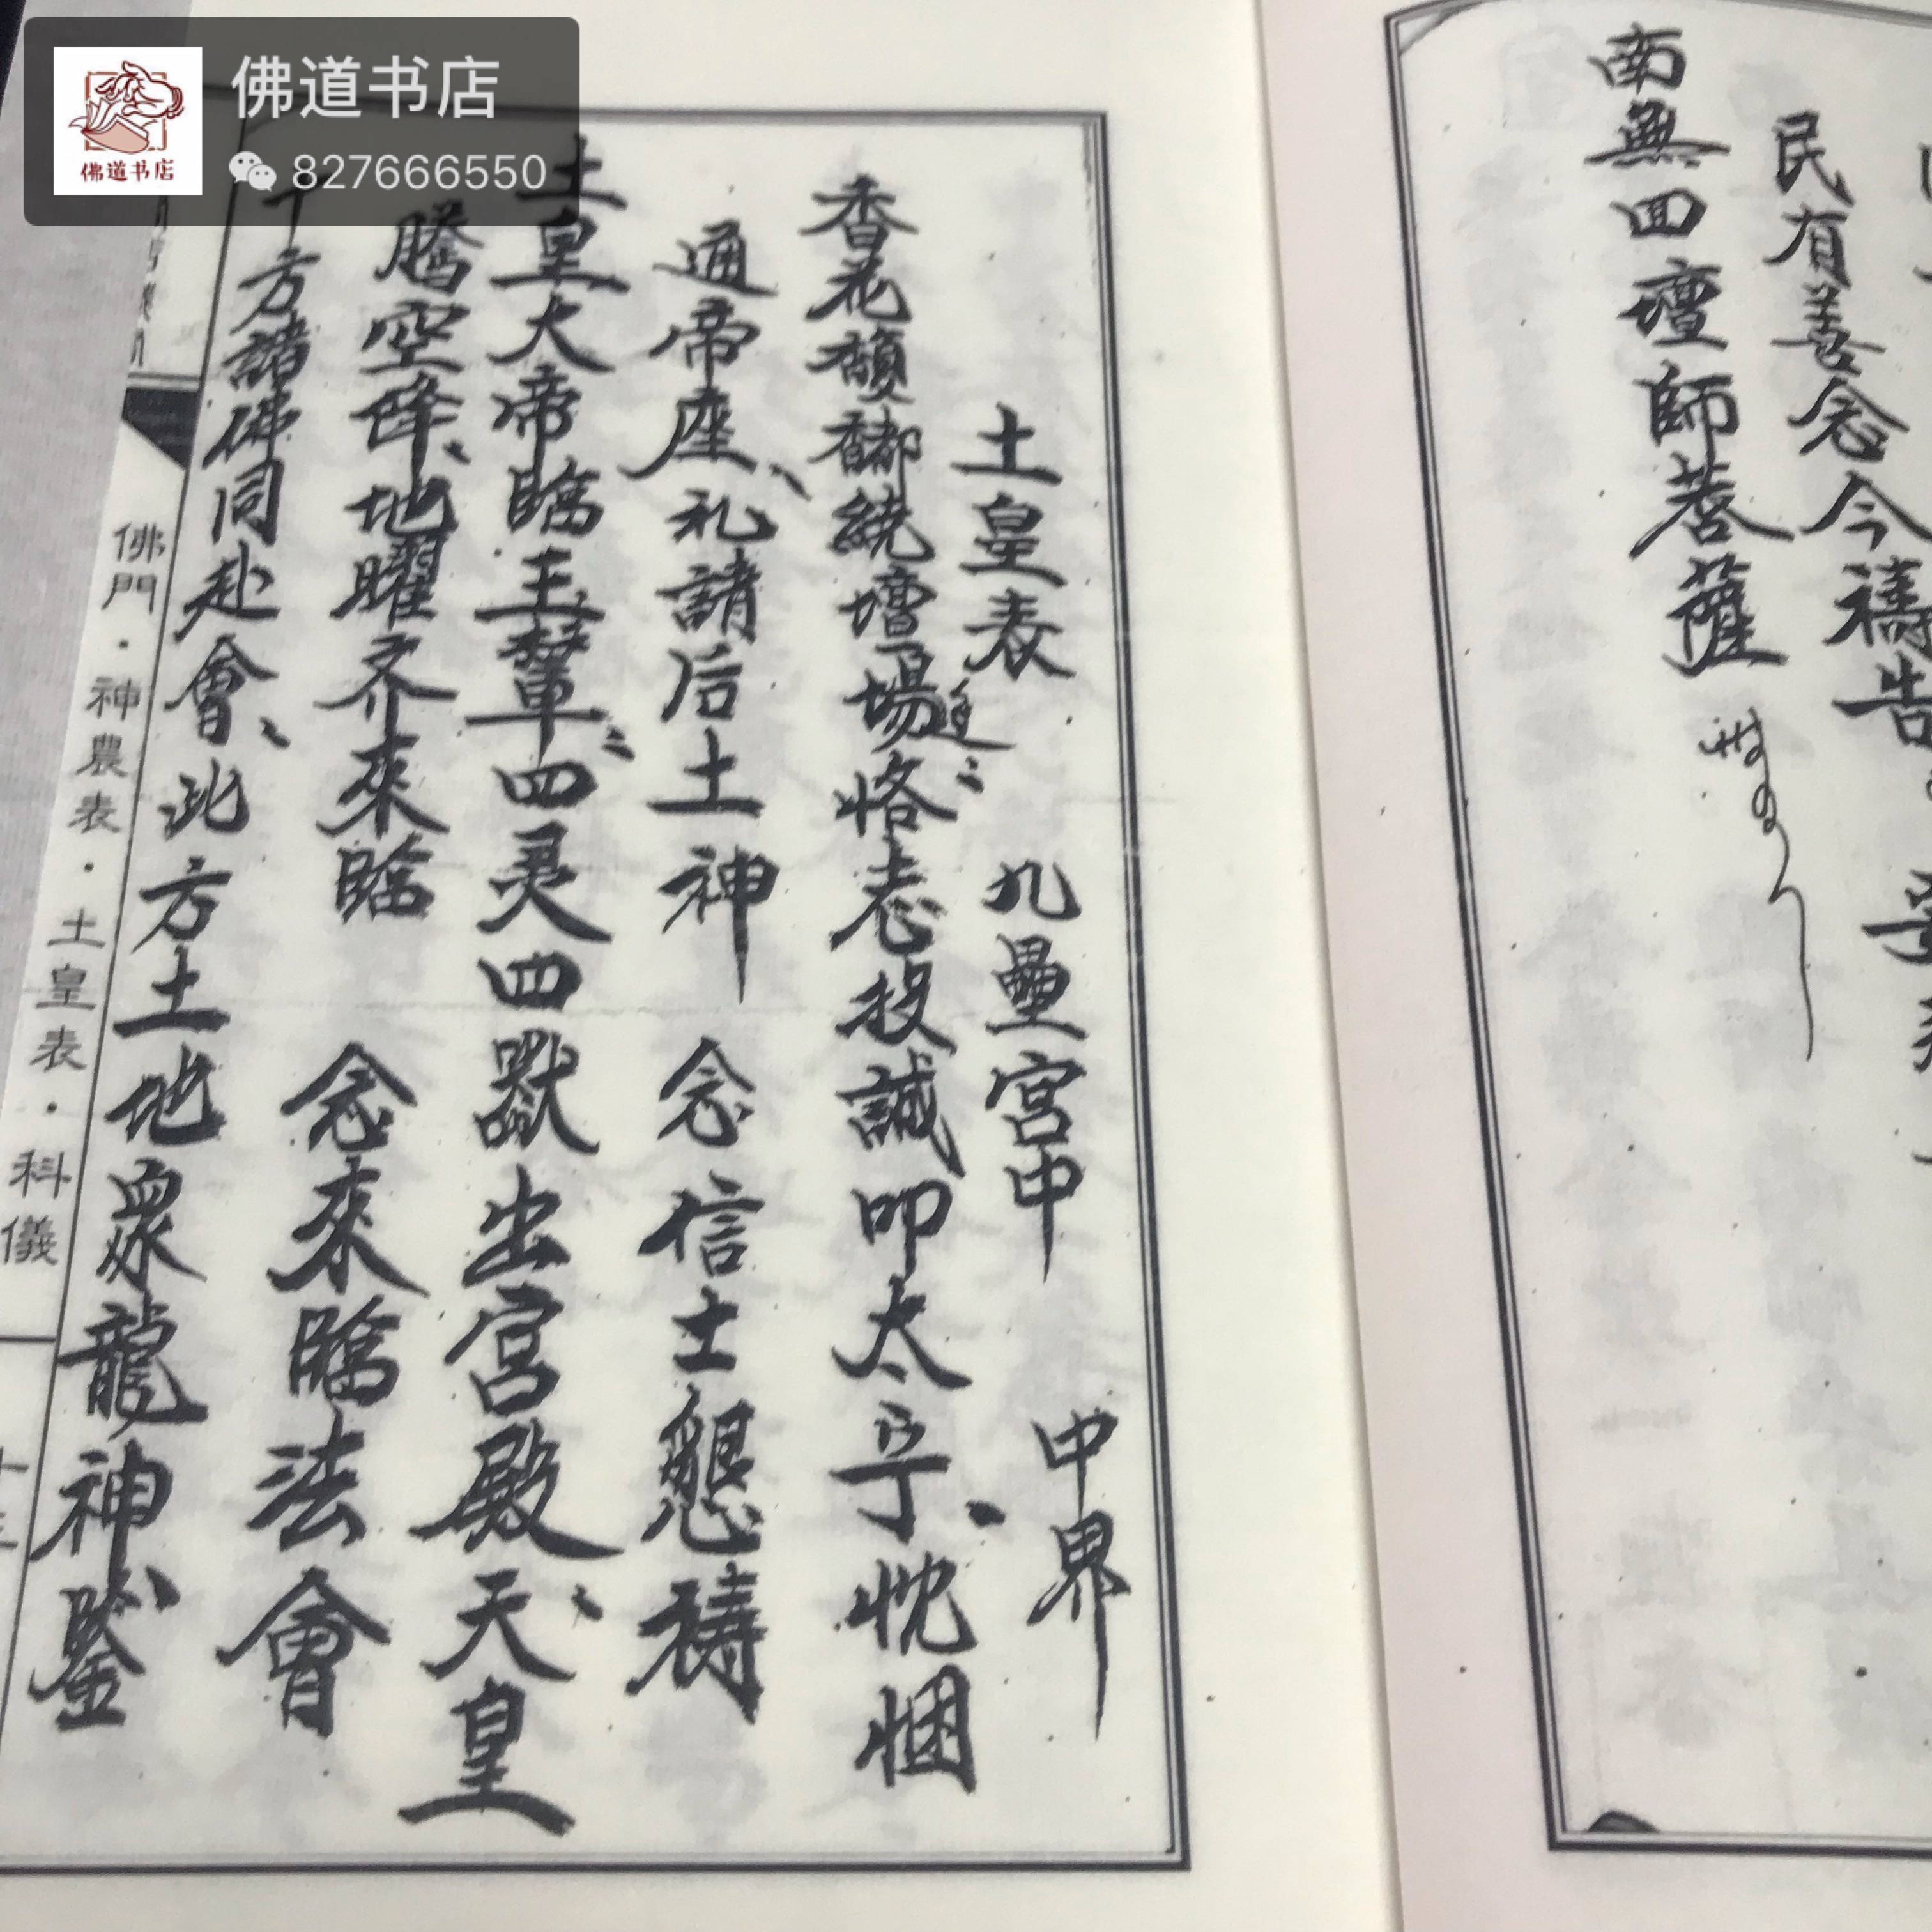 佛道书店
827666550
佛道书店
民有善念今禱告
南無四壇師菩薩
土皇表 九壘宮中 中界
香花馥郁繞壇場 筵 恪志投誠叩太乎、忱悃
通帝座、礼請后土神 念信士懇禱
土皇大帝臨玉輦 四灵四獸出宮殿、天皇
騰空降、地曜齐來臨 念來臨法會
十方諸佛同赴會、此方土地眾龍神、鑒
佛門·神農表·土皇表·科儀